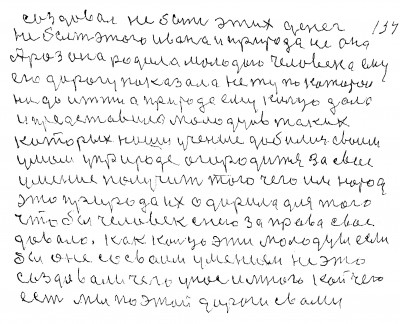 создовал не быть этих денег 134
не был этого ивана и природа не она
А раз она родила молодого человека ему
его дорогу показала не ту по которой
надо итти а природа ему кинуо дала
и представила молодцов таких
которых наши учение добились своим
умом у природе огородится за свое
умение получит того чего им народ
это природа их одарила для того
что бы человек с нею за права свое
довало. как концо эти молодцы если
бы оне со своим умением не это
создовали чего у нас и много кой чего
ест мы по этой дороги свами